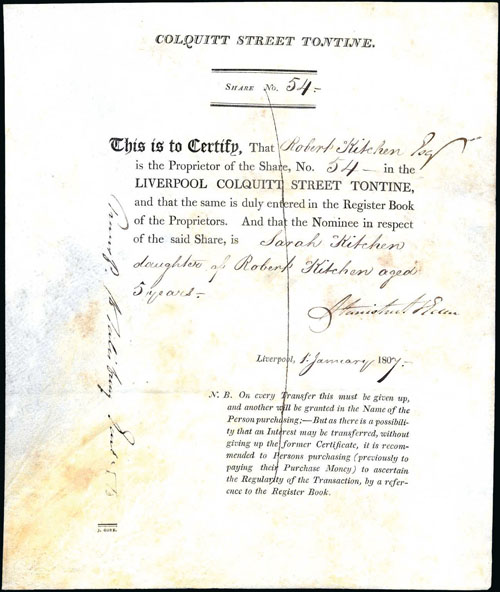 COLQUITT STREET TONTINE.
SHARE No. 54-
This is to Certify, That Robert Kitchen Esqr
is the Proprietor of the Share, No. 54 - in the
LIVERPOOL COLQUITT STREET TONTINE,
and that the same is duly entered in the Register Book
of the Proprietors. And that the Nominee in respect
of the said Share, is Sarah Kitchen
daughter of Robert Kitchen aged
5 years -
Liverpool, 1 January 1807.
N. B. On every Transfer this must be given up,
and another will be granted in the Name of the
Person purchasing:—But as there is a possibili-
ty that an Interest may be transferred, without
giving up the former Certificate, it is recom-
mended to Persons purchasing (previously to
paying their Purchase Money) to ascertain
the Regularity of the Transaction, by a refer-
ence to the Register Book.
J. GORE.